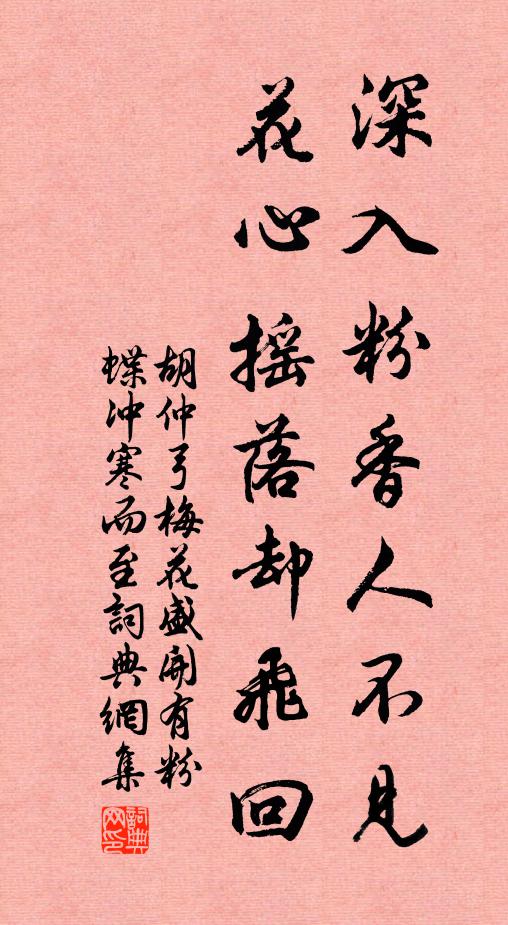 深入粉香人不見
花心搖落却飛回
胡仲弓梅花盛開有粉
蝶冲寒而至詞典網集
詞典
网印